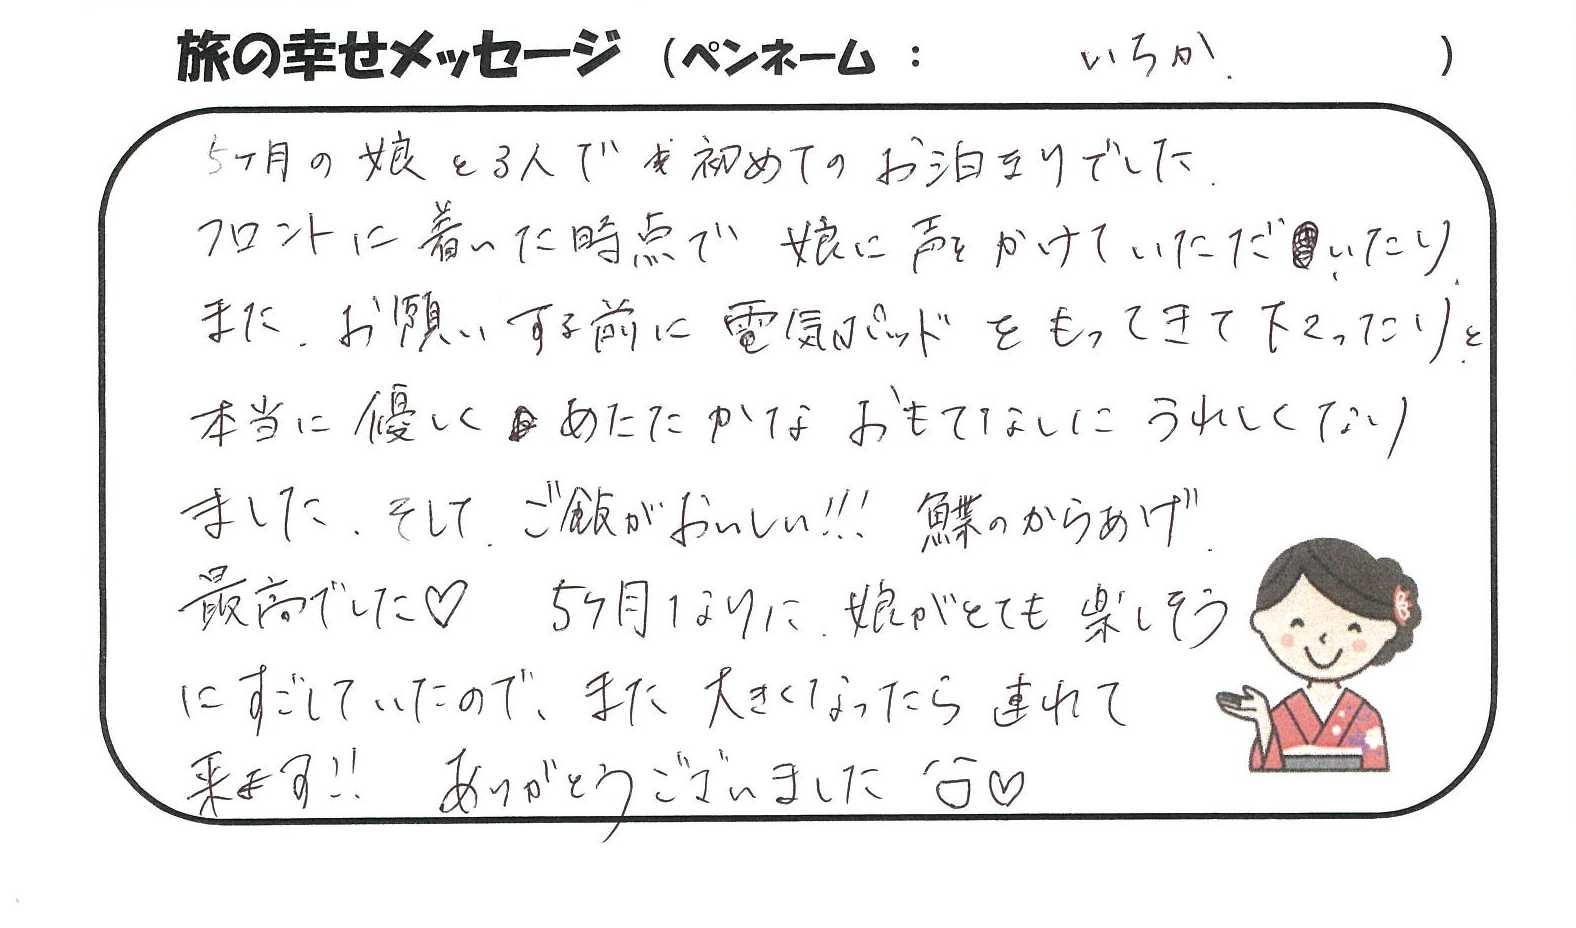 旅の幸せメッセージ (ペンネーム : いちか. )
5ヶ月の娘と3人で 初めてのお泊まりでした.
フロントに着いた時点で 娘に声をかけていただいたり.
また.お願いする前に電気パッドをもってきて下さったりと.
本当に優しく あたたかな おもてなしに うれしくなり
ました.そして.ご飯がおいしい!!! 鰈のからあげ.
最高でした♡ 5ヶ月なりに.娘がとても楽しそう
にすごしていたので、また 大きくなったら 連れて
来ます!! ありがとうございました ♡